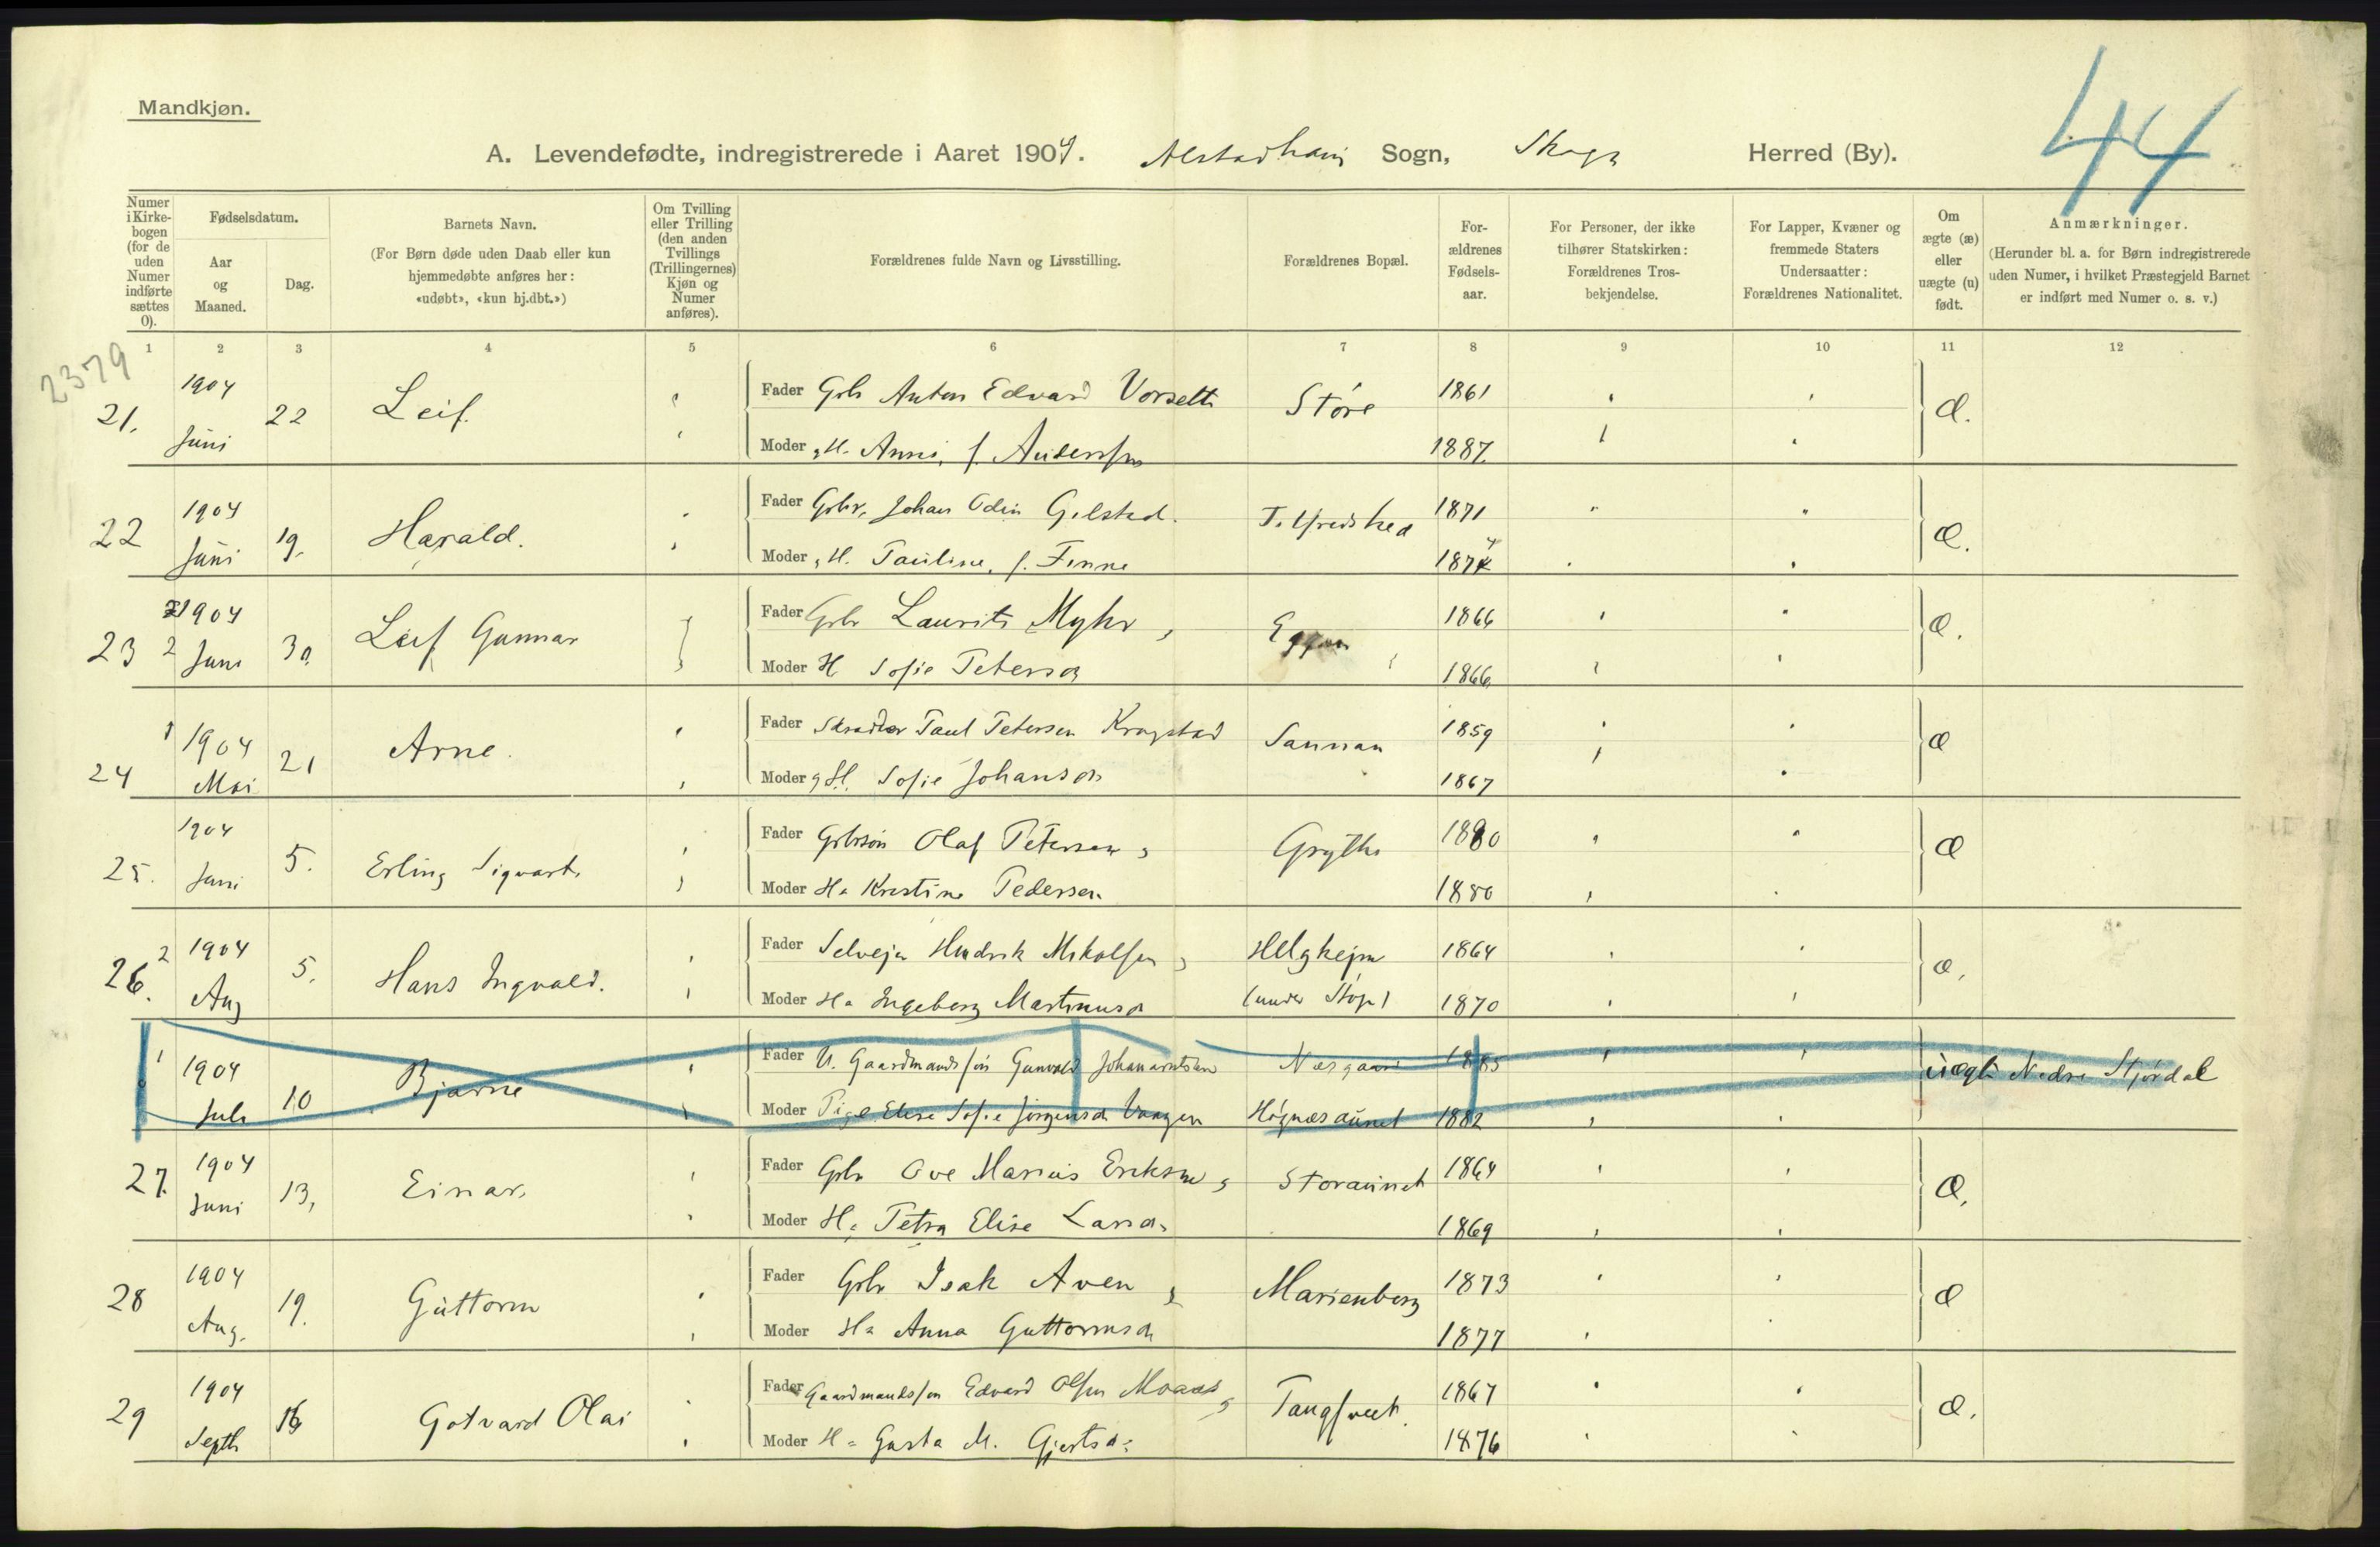 44
Mandkjøn.
A. Levendefødte, indregistrerede i Aaret 1904. Alstadhaug Sogn, Skogn Herred (By).
Numer i Kirkebogen (for de uden Numer indførte sættes 0).
Fødselsdatum.
Aar og Maaned.
Dag.
Barnets Navn.
(For Børn døde uden Daab eller kun hjemmedøbte anføres her: «udøbt», «kun hj.dbt.»)
Om Tvilling eller Trilling (den anden Tvillings (Trillingernes) Kjøn og Numer anføres).
Forældrenes fulde Navn og Livsstilling.
Forældrenes Bopæl.
Forældrenes Fødselsaar.
For Personer, der ikke tilhører Statskirken: Forældrenes Trosbekjendelse.
For Lapper, Kvæner og fremmede Staters Undersaatter: Forældrenes Nationalitet.
Om ægte (æ) eller uægte (u) født.
Anmærkninger.
(Herunder bl. a. for Børn indregistrerede uden Numer, i hvilket Præstegjeld Barnet er indført med Numer o. s. v.)
1 2 3 4 5 6 7 8 9 10 11 12
2379
21. 1904 Juni 22 Leif. Fader Gbr Anton Edvard Vorseth Støre 1861 æ.
Moder H. Anna, f. Anderssen 1887
22 1904 Juni 19. Harald. Fader Gbr. Johan Odin Gilstad. 1871 æ.
Moder H. Pauline, f. Finne 1874
23 2 1904 Juni 30. Leif Gunnar Fader Gbr Laurits Myhr, Eggen 1866 æ.
Moder H Sofie Petersd 1866
24 1 1904 Mai 21 Arne. Fader Skrædder Paul Petersen Kragstad Sannan 1859 æ
Moder H. Sofie Johansd 1867
25. 1904 Juni 5. Erling Sigvart. Fader Gbrsøn Olaf Petersen, Grythe 1880 æ
Moder Ha Kristine Pedersen 1880
26. 2 1904 Aug 5. Hans Ingvald. Fader Selvejer Hendrik Mikalsen, Helgheim 1864 æ.
Moder Ha Ingeborg Martinusd (under ) 1870
0 1 1904 Juli 10 Bjarne Fader U. Gaardmandssøn Gunvald Johanarntsen Næsgaard 1885 uægte Nedre Stjørdal
Moder Pige Elise Sofie Jørgensd Vaagen Høgnæsaunet 1882
27. 1904 Juni 13, Einar, Fader Gbr Ove Marius Eriksen, Storaunet 1864 æ.
Moder Ha Petra Elise Larsd. 1869
28 1904 Aug. 19. Guttorm Fader Gbr Isak Aven, Marienborg 1873 æ
Moder Ha Anna Guttormsd 1877
29 1904 Septb 16 Gotvard Olai Fader Gaardmandssøn Edvard Olsen Moaas, Tangstuet. 1867 æ.
Moder Ha Gusta M. Gjertsd. 1876